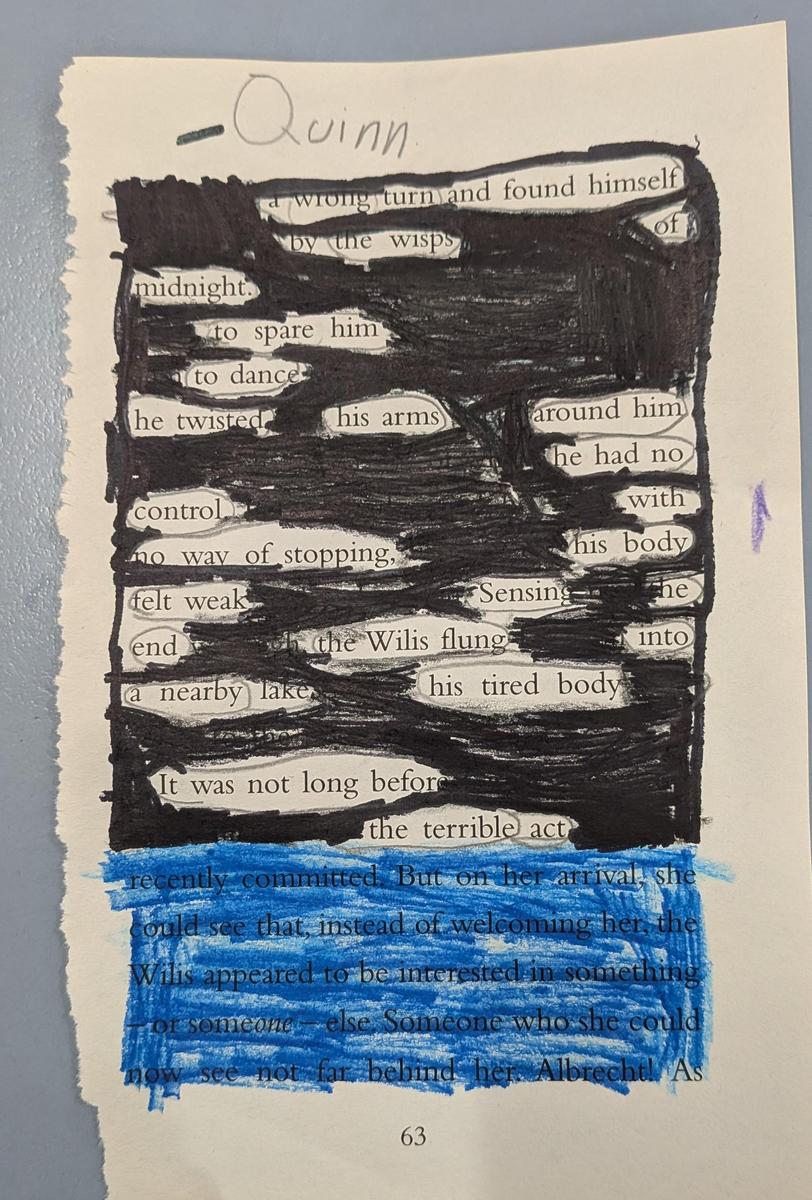 - Quinn
a wrong turn and found himself
by the wisps of
midnight.
to spare him
to dance
he twisted his arms around him
he had no
control with
no way of stopping, his body
felt weak Sensing he
end the Wilis flung into
a nearby lake. his tired body
It was not long before
the terrible act
recently committed. But on her arrival, she
could see that, instead of welcoming her, the
Wilis appeared to be interested in something
– or someone – else. Someone who she could
now see not far behind her. Albrecht! As
63